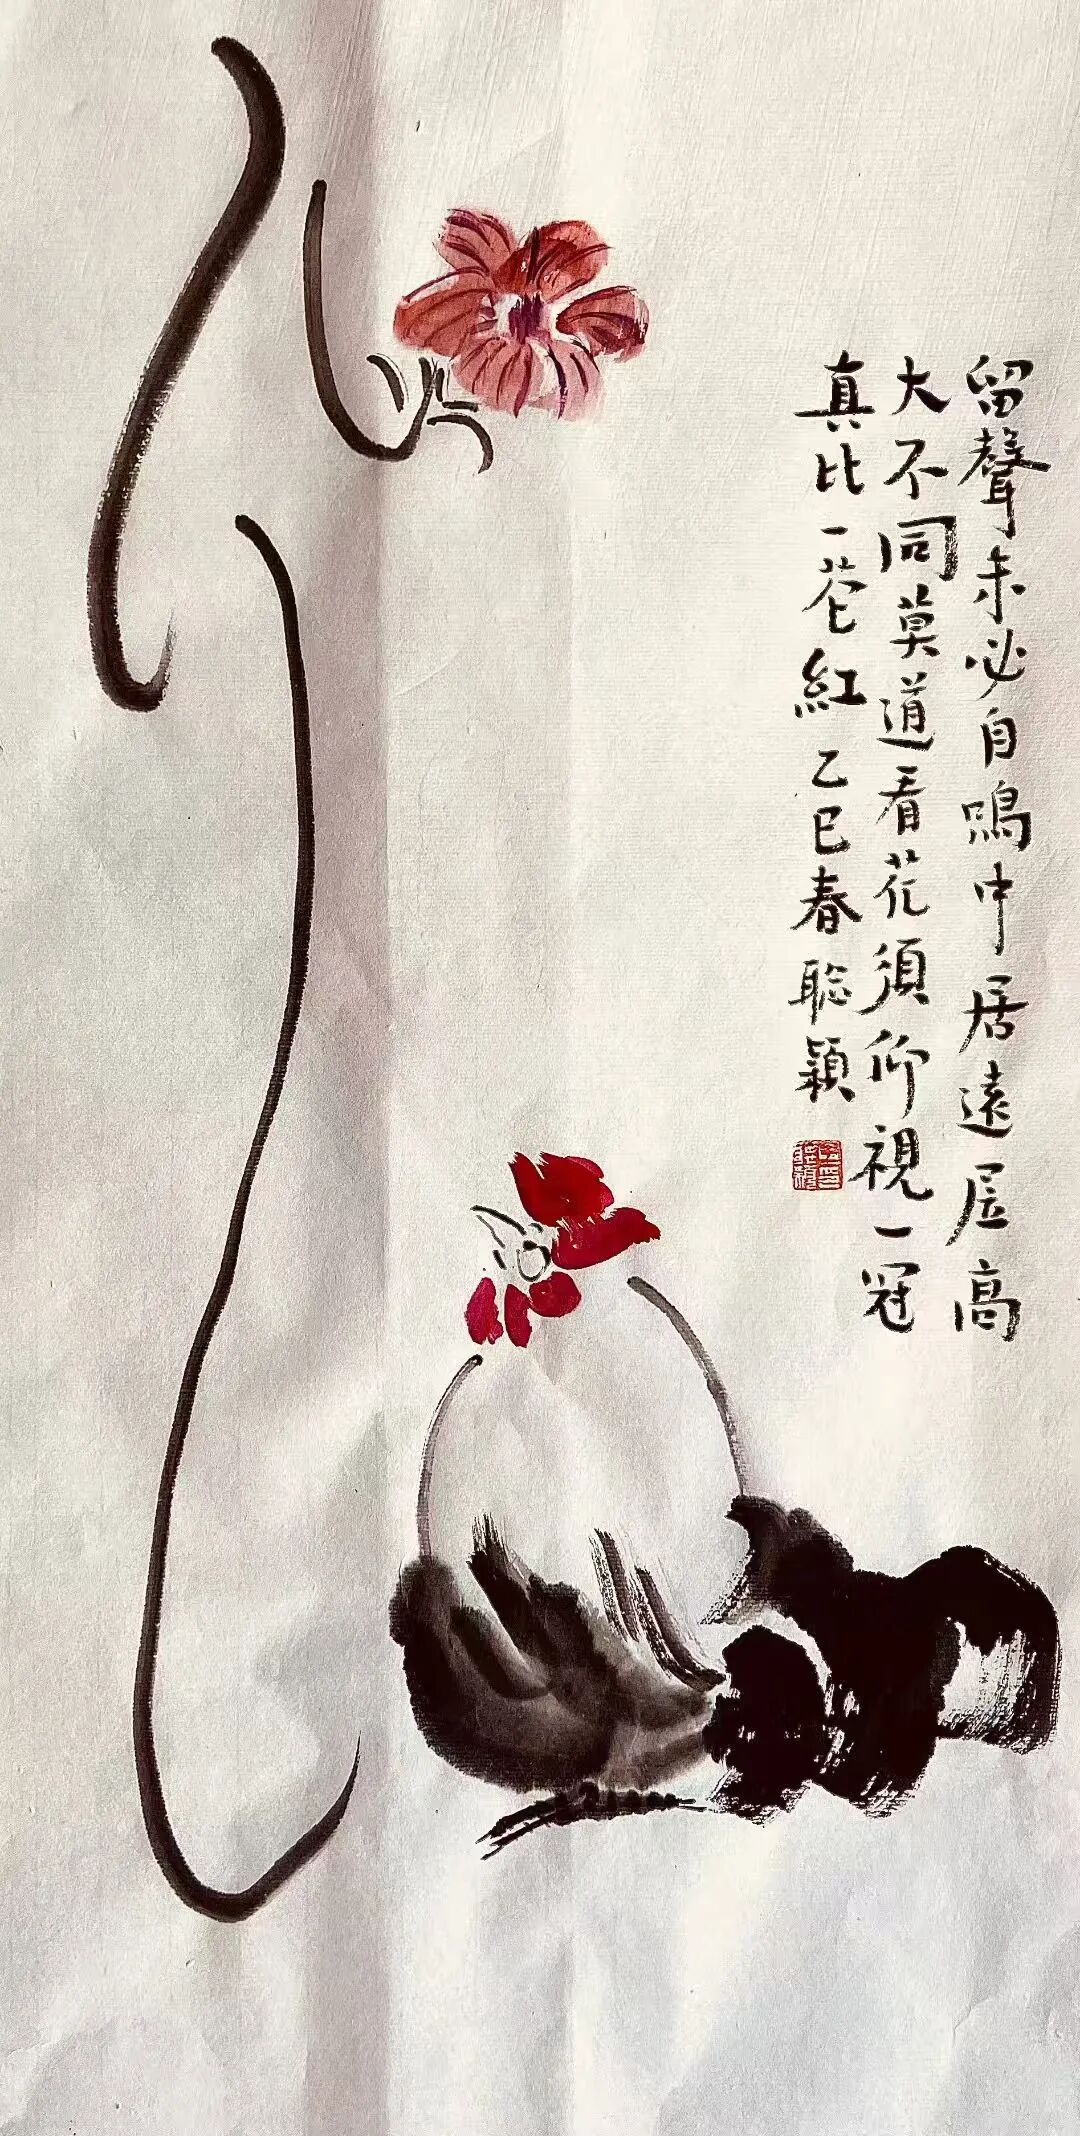 留聲未必自鳴中居遠居高
大不同莫道看花須仰視一冠
真比一花紅乙巳春聡穎